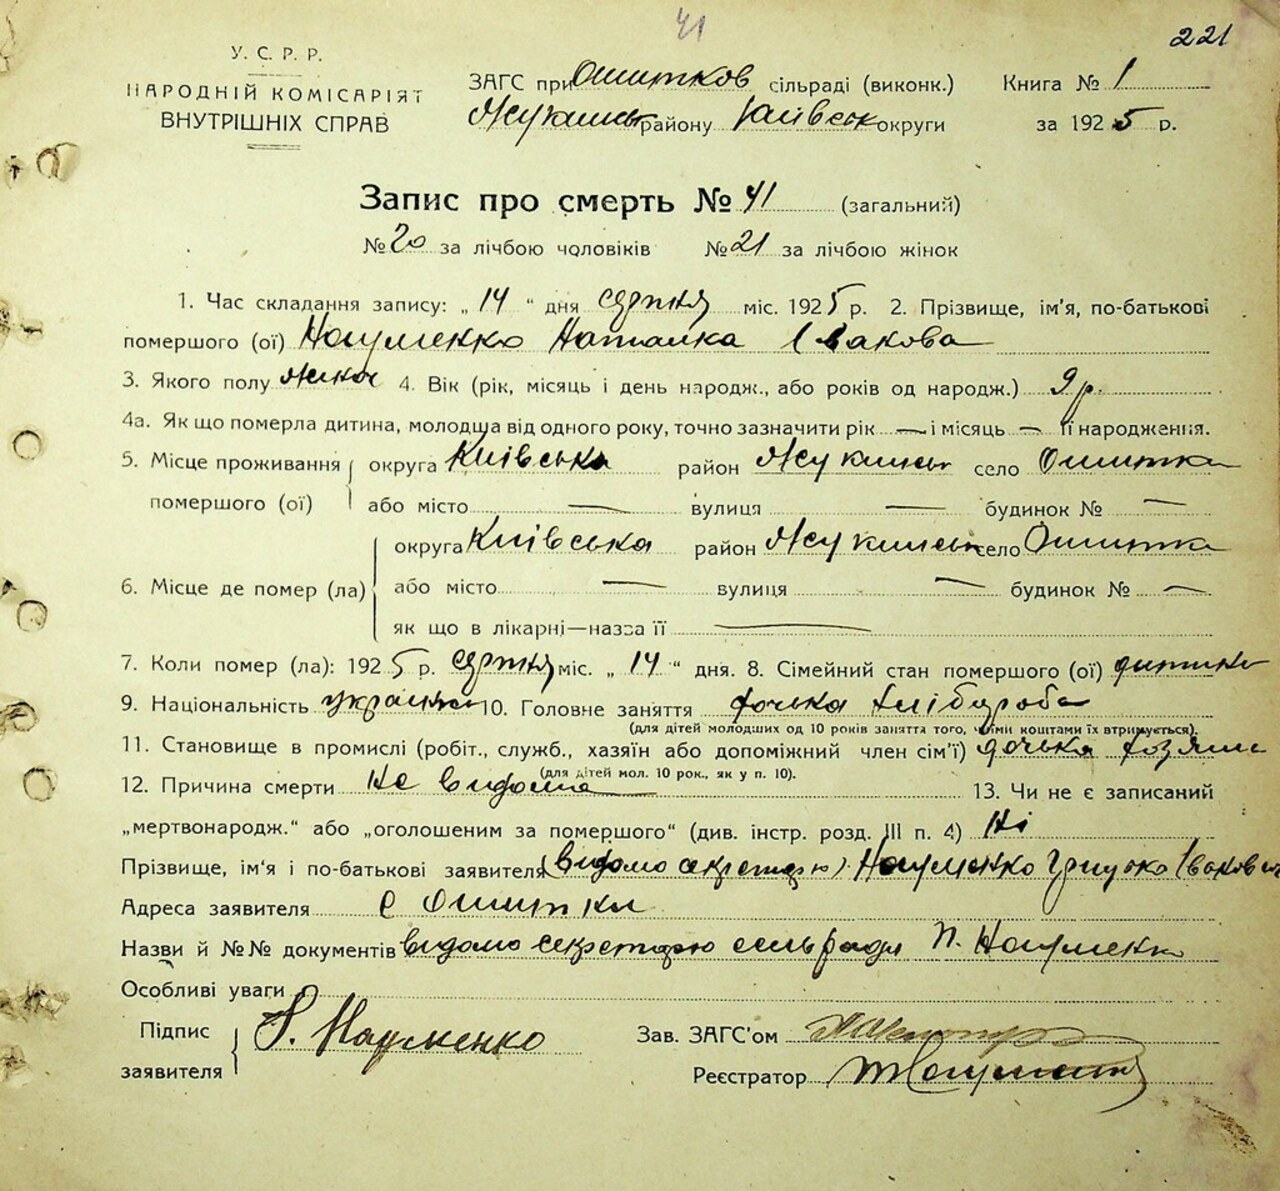 41
221
У. С. Р. Р.
НАРОДНІЙ КОМІСАРІЯТ
ВНУТРІШНІХ СПРАВ
ЗАГС при Ошитков сільраді (виконк.)
Жукинськ району Київськ округи
Книга № 1
за 1925 р.
Запис про смерть № 41 (загальний)
№ 20 за лічбою чоловіків № 21 за лічбою жінок
1. Час складання запису: „ 14 “ дня серпня міс. 1925 р. 2. Прізвище, ім’я, по-батькові
помершого (ої) Науменко Наталка Івакова
3. Якого полу жіноч 4. Вік (рік, місяць і день народж., або років од народж.) 9 р.
4а. Як що померла дитина, молодша від одного року, точно зазначити рік — і місяць — її народження.
5. Місце проживання округа Київська район Жукинськ село Ошитка
помершого (ої) або місто — вулиця — будинок № —
округа Київська район Жукинськ село Ошитка
6. Місце де помер (ла) або місто — вулиця — будинок № —
як що в лікарні—назва її —
7. Коли помер (ла): 1925 р. серпня міс. „ 14 “ дня. 8. Сімейний стан помершого (ої) дитина
9. Національність українка 10. Головне заняття дочька хлібороба
(для дітей молодших од 10 років заняття того, чиїми коштами їх втримується).
11. Становище в промислі (робіт., служб., хазяїн або допоміжний член сім’ї) дочька хозяина
(для дітей мол. 10 рок., як у п. 10).
12. Причина смерти не видома 13. Чи не є записаний
„мертвонародж.“ або „оголошеним за помершого“ (див. інстр. розд. III п. 4) ні
Прізвище, ім‘я і по-батькові заявителя (видомо секретарю) Науменко Грицько
Адреса заявителя с Ошитки
Назви й №№ документів видомо секретарю сельради П. Науменко
Особливі уваги
Підпис
заявителя
Г. Науменко
Зав. ЗАГС'ом
Реєстратор Науменко